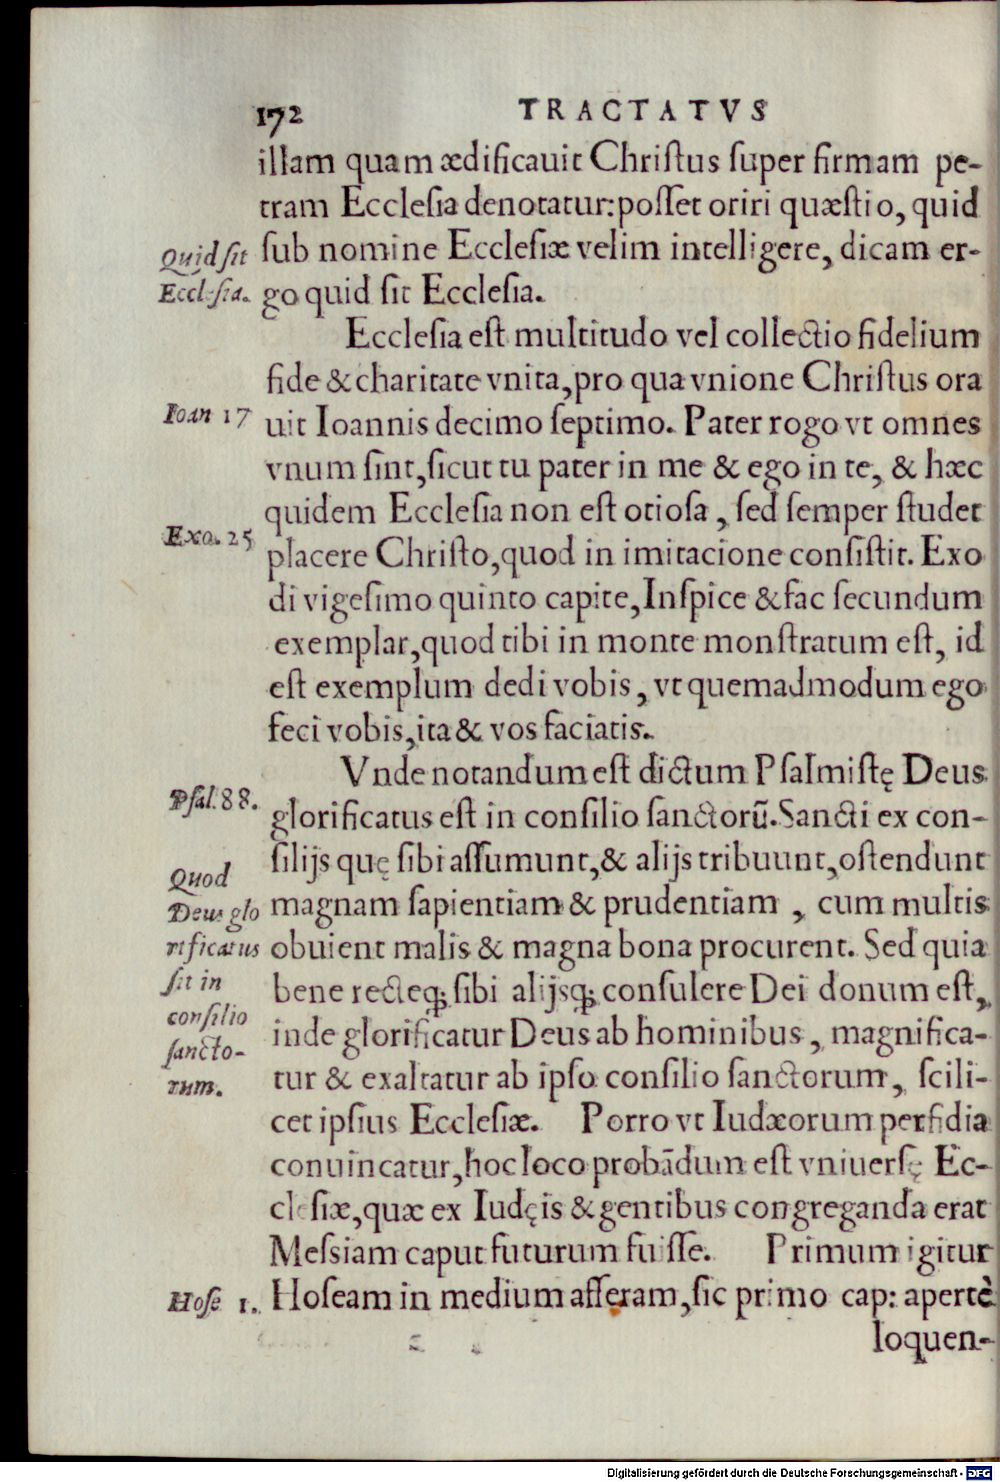 172 TRACTATVS
illam quam ædificauit Chriſtus ſuper firmam pe-
tram Eccleſia denotatur: poſſet oriri quæſtio, quid
Quid ſit
ſub nomine Eccleſiæ velim intelligere, dicam er-
Eccleſia.
go quid ſit Eccleſia.
Eccleſia eſt multitudo vel collectio fidelium
fide & charitate vnita, pro qua vnione Chriſtus ora
Ioan 17
uit Ioannis decimo ſeptimo. Pater rogo vt omnes
vnum ſint, ſicut tu pater in me & ego in te, & hæc
quidem Eccleſia non eſt otioſa, ſed ſemper ſtudet
Exo. 25
placere Chriſto, quod in imitacione conſiſtit. Exo
di vigeſimo quinto capite, Inſpice & fac ſecundum
exemplar, quod tibi in monte monſtratum eſt, id
eſt exemplum dedi vobis, vt quemadmodum ego
feci vobis, ita & vos faciatis.
Vnde notandum eſt dictum Pſalmiſtę Deus
Pſal. 88.
glorificatus eſt in conſilio ſanctorũ. Sancti ex con-
ſilijs quę ſibi aſſumunt, & alijs tribuunt, oſtendunt
Quod
Deus glo
rificatus
ſit in
conſilio
ſancto-
rum.
magnam ſapientiam & prudentiam, cum multis
obuient malis & magna bona procurent. Sed quia
bene recteq; ſibi alijsq; conſulere Dei donum eſt,
inde glorificatur Deus ab hominibus, magnifica-
tur & exaltatur ab ipſo conſilio ſanctorum, ſcili-
cet ipſius Eccleſiæ. Porro vt Iudæorum perfidia
conuincatur, hoc loco probãdum eſt vniuerſę Ec-
cleſiæ, quæ ex Iudęis & gentibus congreganda erat
Meſsiam caput futurum fuiſſe. Primum igitur
Hoſe 1.
Hoſeam in medium afferam, ſic primo cap: apertè
loquen-
Digitalisierung gefördert durch die Deutsche Forschungsgemeinschaft - DFG